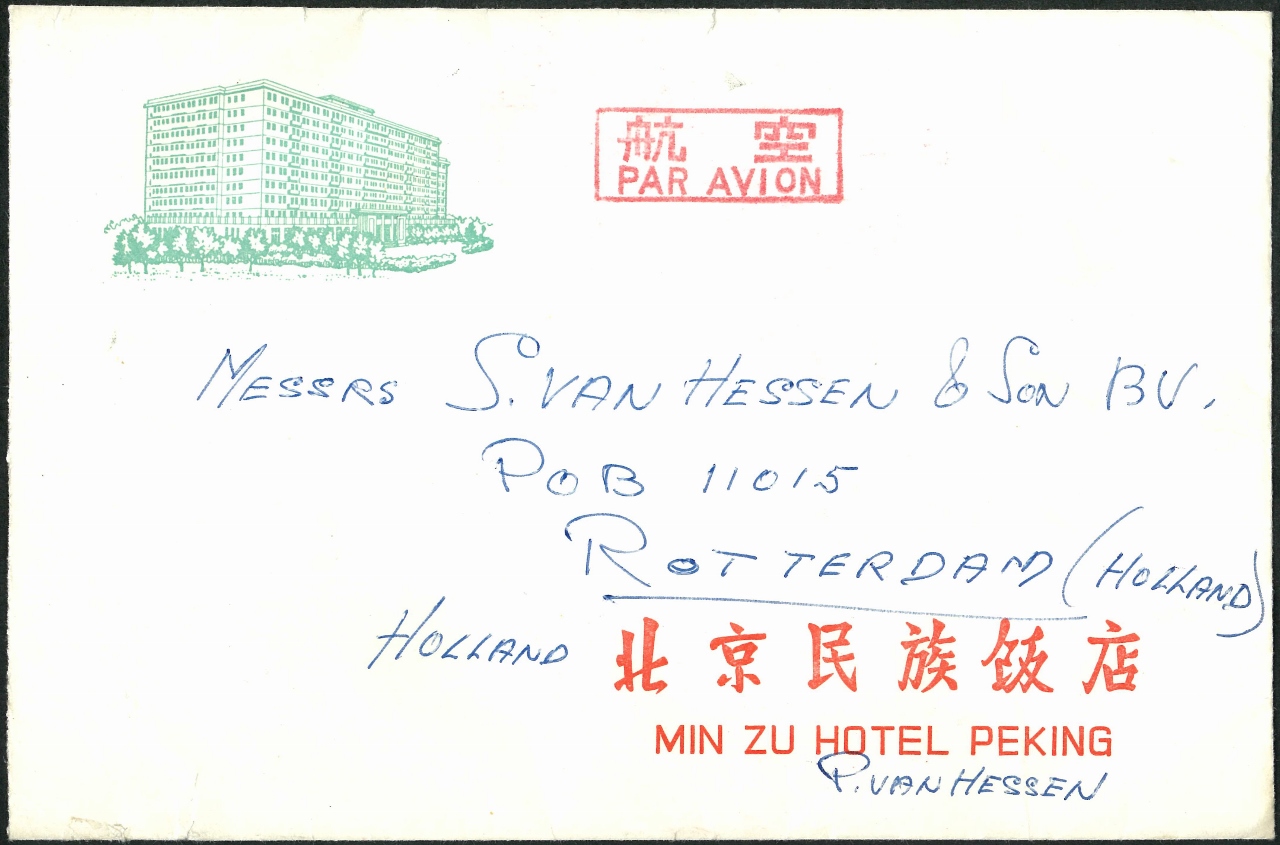 航空
PAR AVION
MESSRS S. VAN HESSEN & SON BV.
POB 11015
ROTTERDAM (HOLLAND)
HOLLAND
北京民族饭店
MIN ZU HOTEL PEKING
P. VAN HESSEN